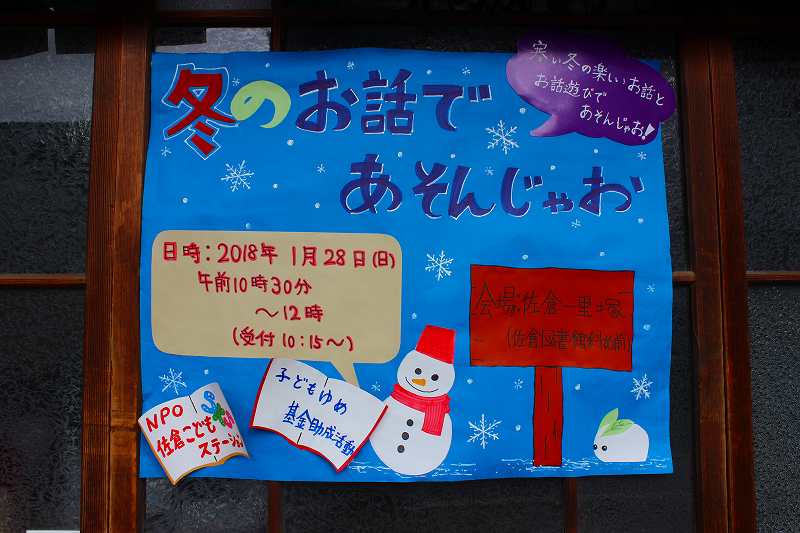 冬のお話で
あそんじゃお
寒い冬の楽しいお話と
お話遊びで
あそんじゃお!
日時:2018年 1月28日(日)
午前10時30分
〜12時
(受付 10:15〜)
会場:佐倉一里塚
(佐倉図書館斜め前)
子どもゆめ
基金助成活動
NPO
佐倉こども
ステーション